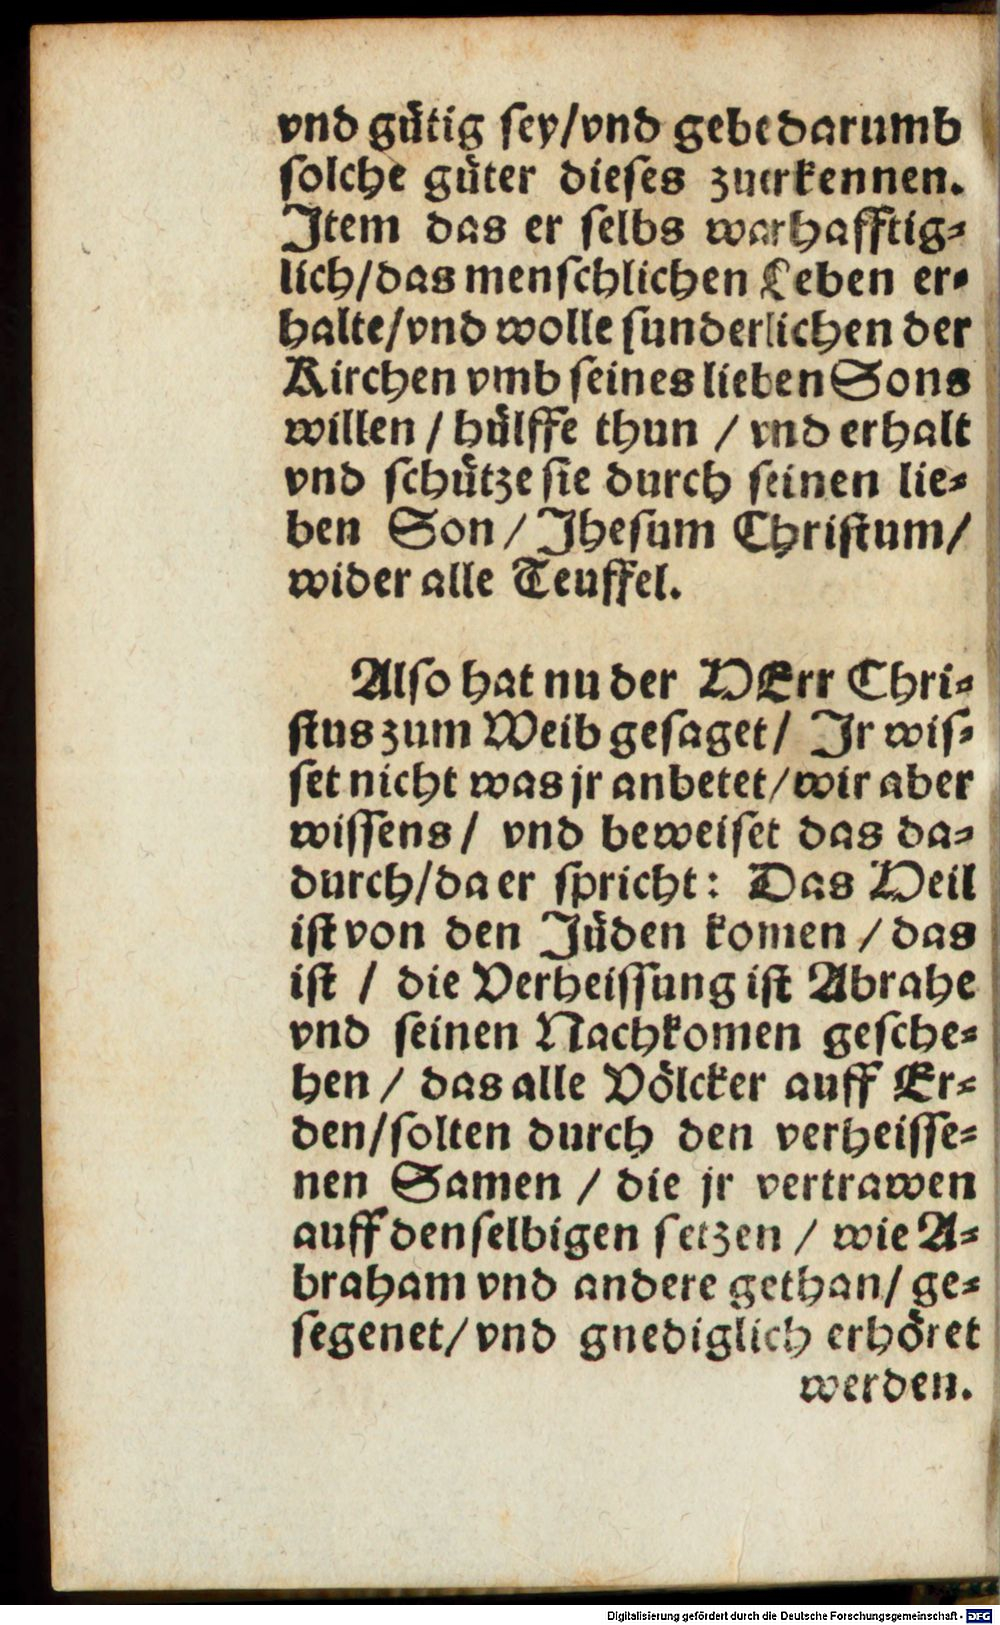 vnd gütig sey/vnd gebe darumb
solche güter dieses zuerkennen.
Item das er selbs warhafftig-
lich/das menschlichen Leben er-
halte/vnd wolle sunderlichen der
Kirchen vmb seines lieben Sons
willen / hülffe thun / vnd erhalt
vnd schütze sie durch seinen lie-
ben Son / Jhesum Christum/
wider alle Teuffel.
Also hat nu der HErr Chri-
stus zum Weib gesaget/ Jr wis-
set nicht was jr anbetet/wir aber
wissens/ vnd beweiset das da-
durch/da er spricht: Das Heil
ist von den Jüden komen / das
ist / die Verheissung ist Abrahe
vnd seinen Nachkomen gesche-
hen / das alle Völcker auff Er-
den/solten durch den verheisse-
nen Samen / die jr vertrawen
auff denselbigen setzen / wie A-
braham vnd andere gethan/ ge-
segenet/vnd gnediglich erhöret
werden.
Digitalisierung gefördert durch die Deutsche Forschungsgemeinschaft - DFG